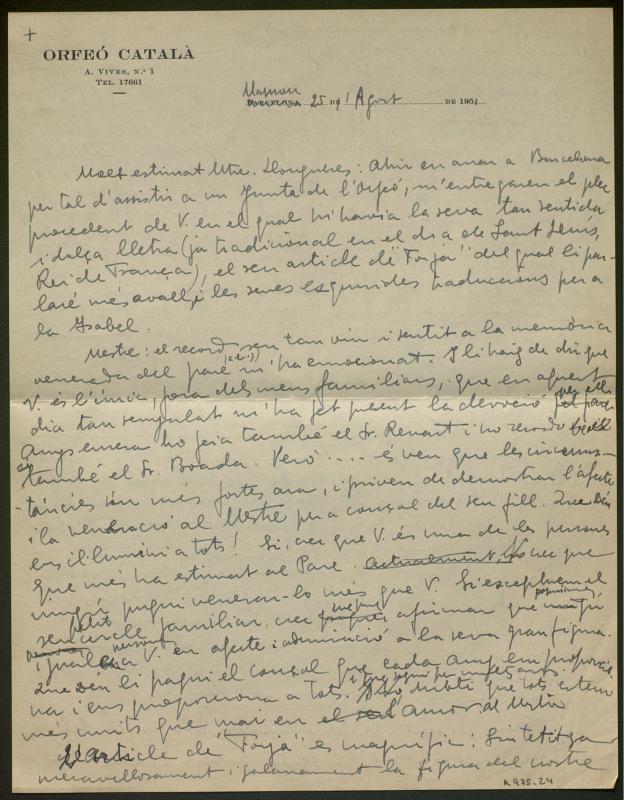 +
ORFEÓ CATALÀ
A. VIVES, N.º 1
TEL. 17661
Masnou
BARCELONA 25 DE Agost DE 1951
Molt estimat Mtre. Llongueres: Ahir en anar a Barcelona
per tal d'assistir a un Junta de l'Orfeó, m'entregaren el plec
procedent de V. en el qual hi havia la seva tan sentida
i dolça lletra (ja tradicional en el dia de Sant Lluís,
Rei de França), el seu article de "Forja" del qual li par-
laré més avall, i les seves esquisides traduccions per a
la Isabel.
Mestre: el record seu tan viu i sentit a la memòria
venerada del pare (a.c.s.) m'ha emocionat. I li haig de dir que
V. és l'únic, fora dels meus familiars, que en aquest
dia tan senyalat m'ha fet present la devoció
Anys enrera ho feia també el Sr. Renart i no recordo
també el Sr. Boada. Però .... és ven que les circums-
tàncies són més fortes ara, i priven de demostrar l'afecte
i la veneració al Mestre per a consol del seu fill. Que Déu
ens il·lumini a tots! Sí, crec que V. és una de les persones
que més ha estimat al Pare. actualment, No crec que
ningú pugui venerar-lo més que V. Si exceptuem el
petit
seu cercle familiar, crec afirmar que
igualen a V. en afecte i admiració a la seva gran figura.
Que Déu li pagui el consol que cada any em proporcio-
na i ens proporciona a tots. i que sigui per molts anys. No dubti que tots estem
més units que mai en el l'amor al Mestre
L'article de "Forja" és magnífic: Sintetitza
meravellosament i galanament la figura del nostre
A 975.24